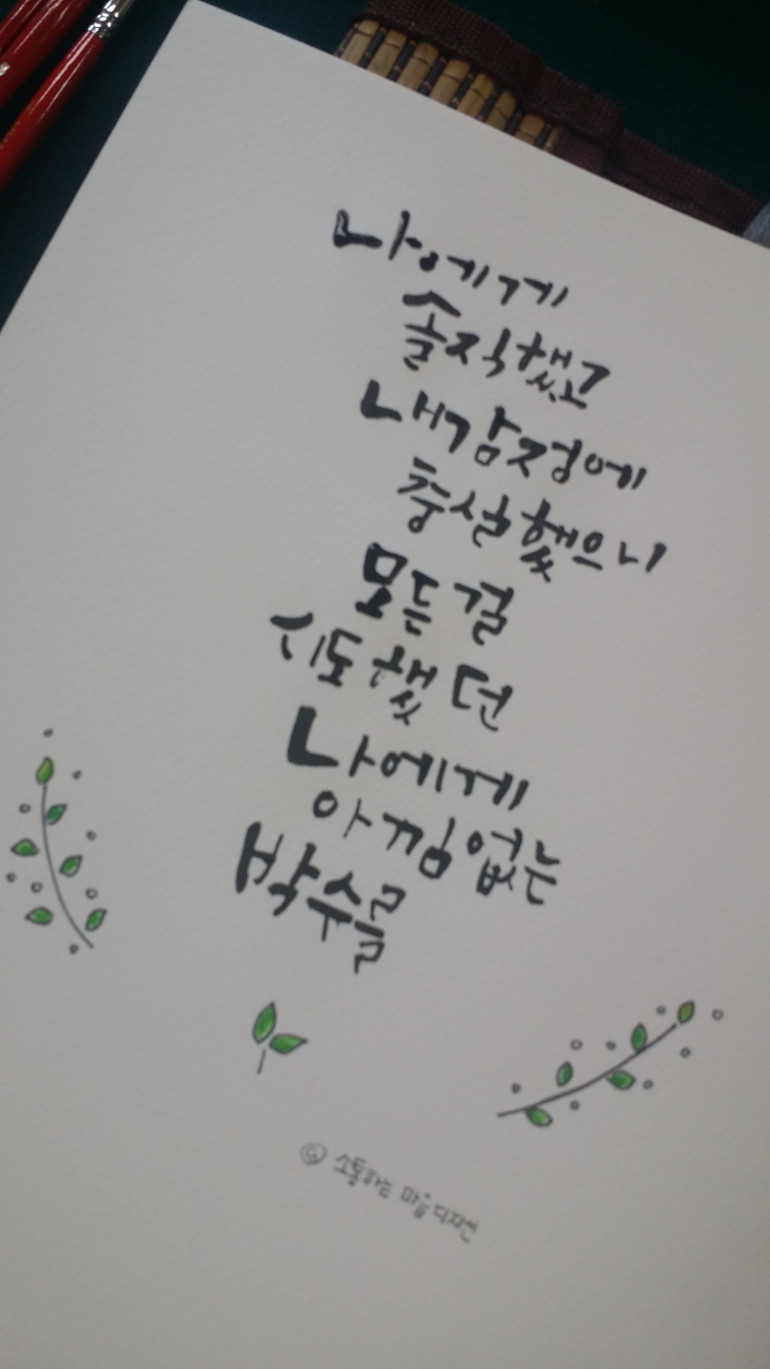 나에게
솔직했고
내감정에
충실했으니
모든걸
시도했던
나에게
아낌없는
박수를
소통하는 마음디자인